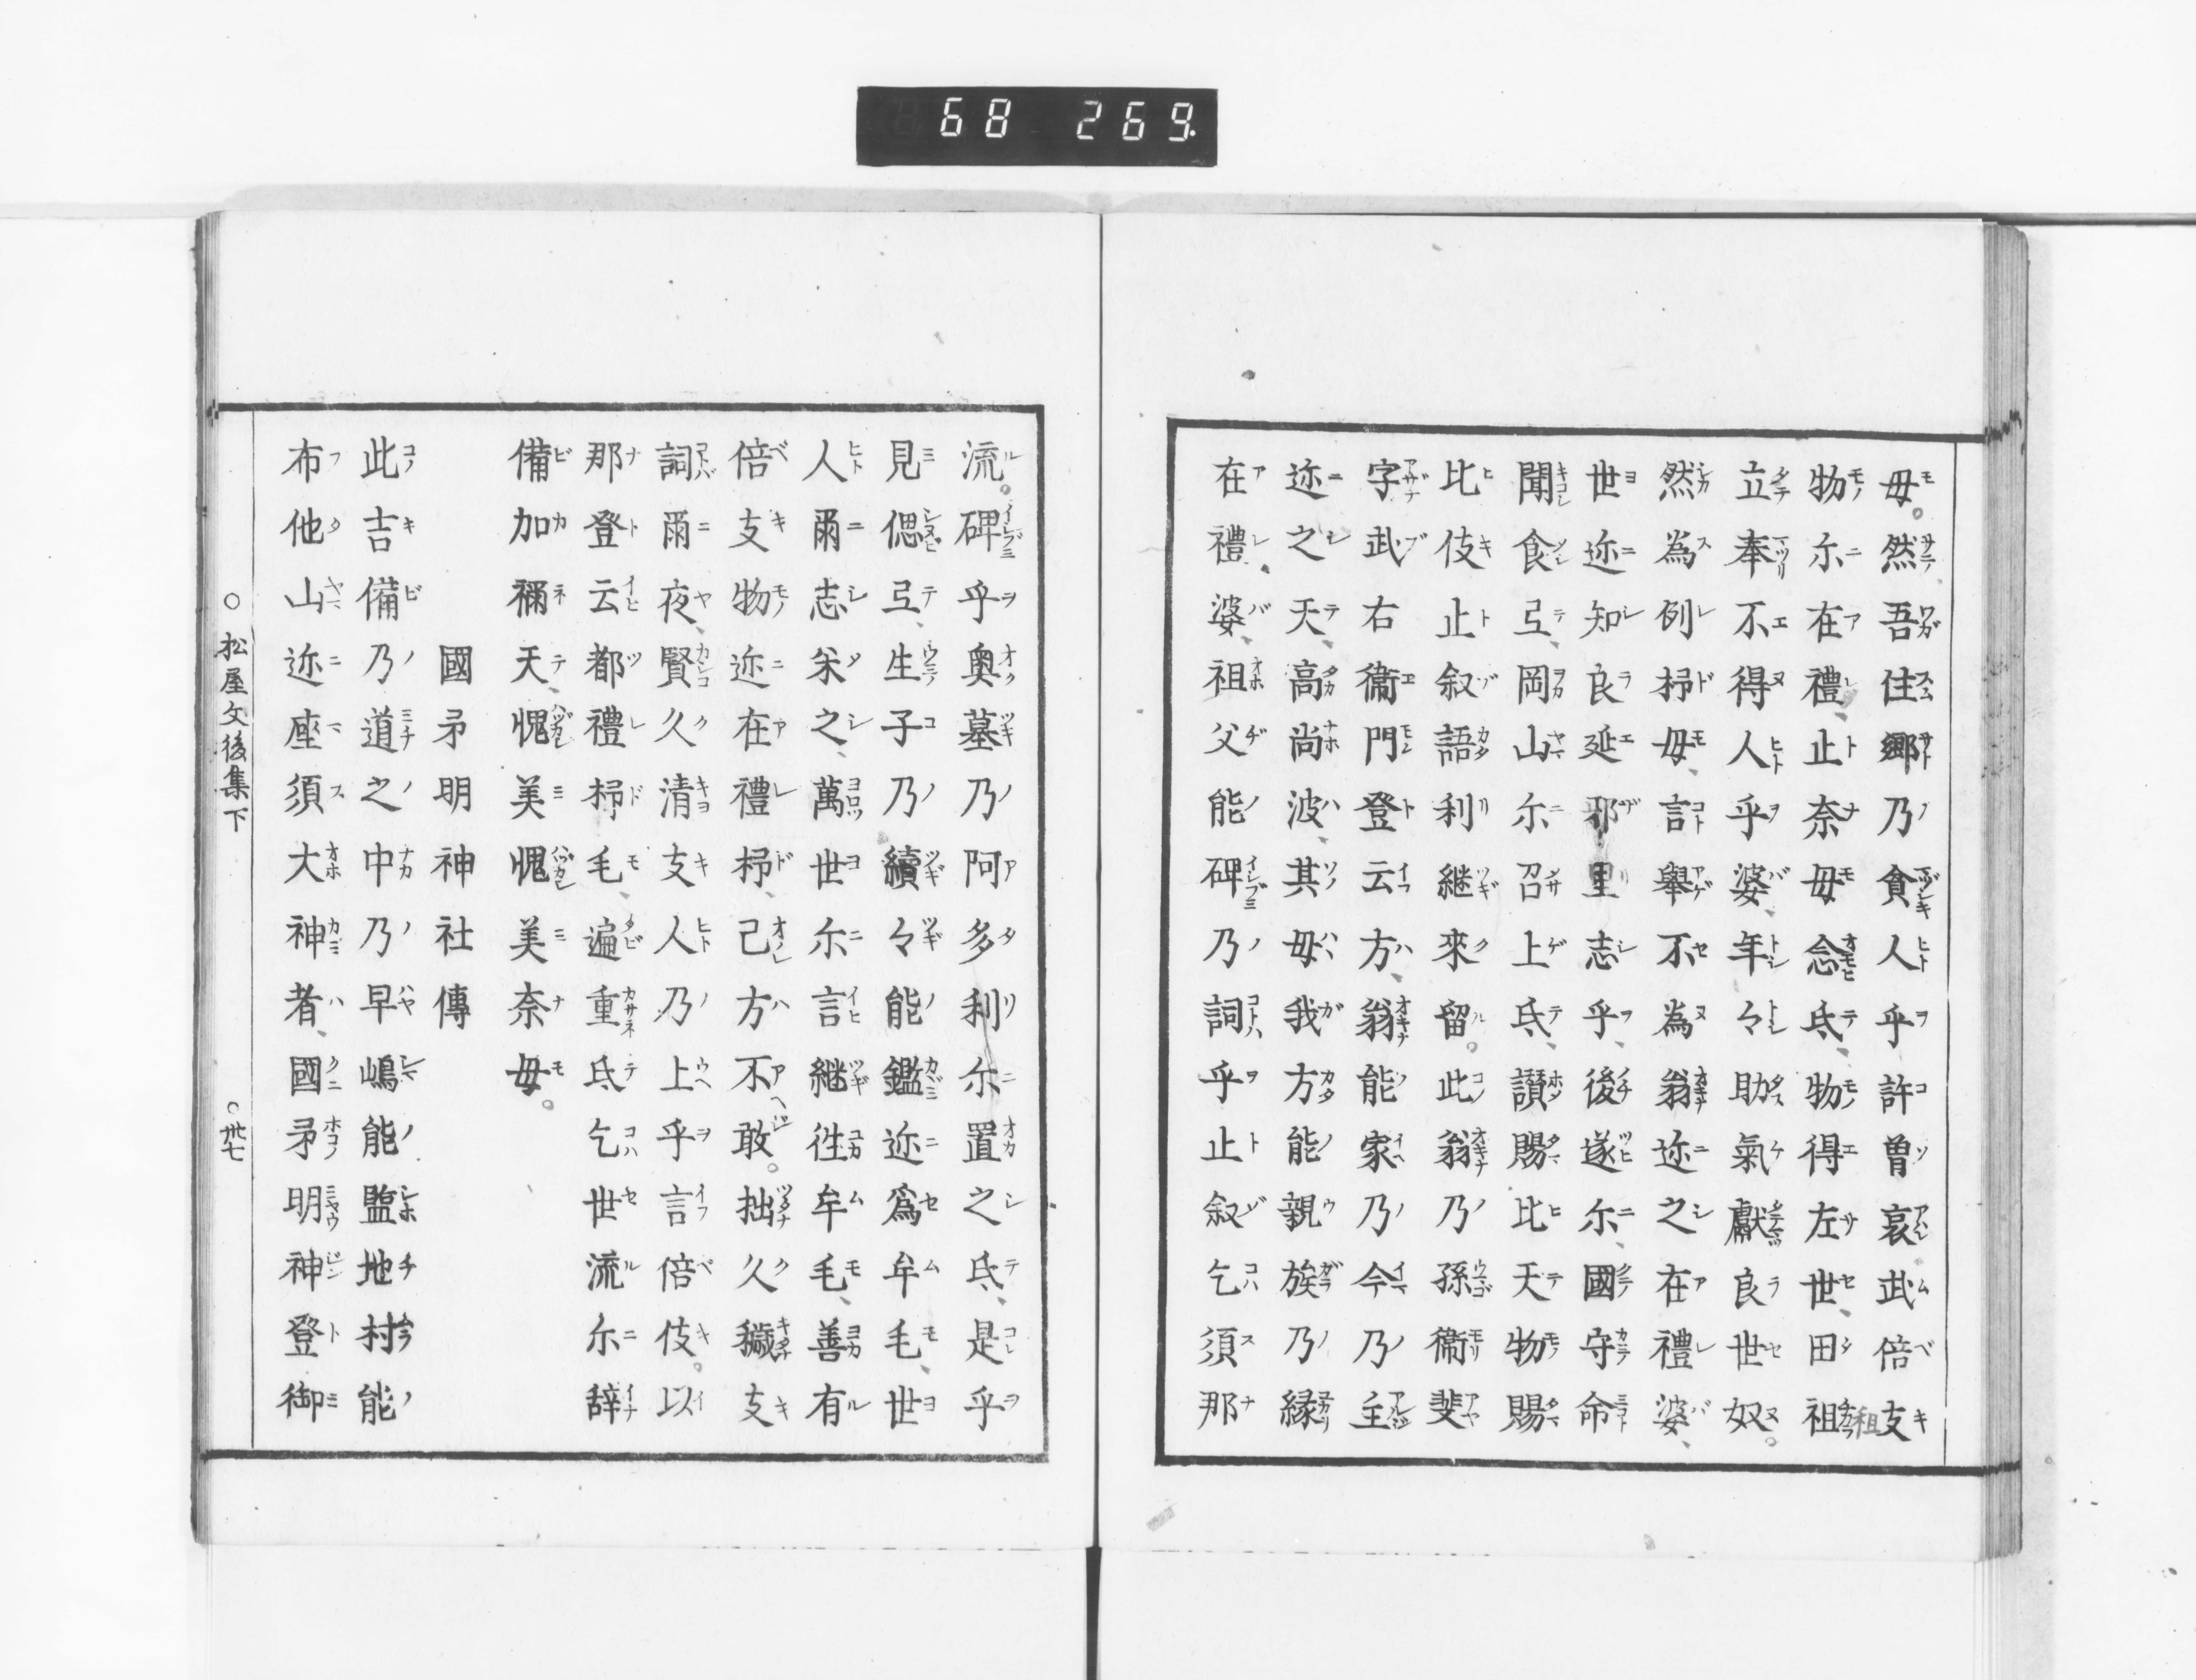 68 269.
毋。然吾住郷乃貪人乎許曽哀武倍支
物尓在禮、止奈毋念氐、物得左世、田祖
租
立奉不得人乎婆、年々助氣獻良世奴。
然為例杼毋、言舉不為翁迩之在禮婆、
世迩知良延邪里志乎、後遂尓、國守命
聞食弖、岡山尓召上氐、讃賜比天物賜
比伎止叙語利継來留。此翁乃孫衞斐
字武右衞門登云方、翁能家乃今乃主
迩之天、高尚波、其毋我方能親族乃縁
在禮、婆、祖父能碑乃詞乎止叙乞須那
流。碑乎奧墓乃阿多利尓置之氐、是乎
見偲弖、生子乃續々能鑑迩為牟毛、世
人爾志米之、萬世尓言継徃牟毛、善有
倍支物迩在禮杼、己方不敢。拙久穢支
詞爾夜、賢久清支人乃上乎言倍伎。以
那登云都禮杼毛、遍重氐乞世流尓辞
備加禰天、愧美愧美奈毋。
國矛明神社傳
此吉備乃道之中乃早嶋能鹽地村能
布他山迩座須大神者、國矛明神登御
○松屋文後集下
○卅七